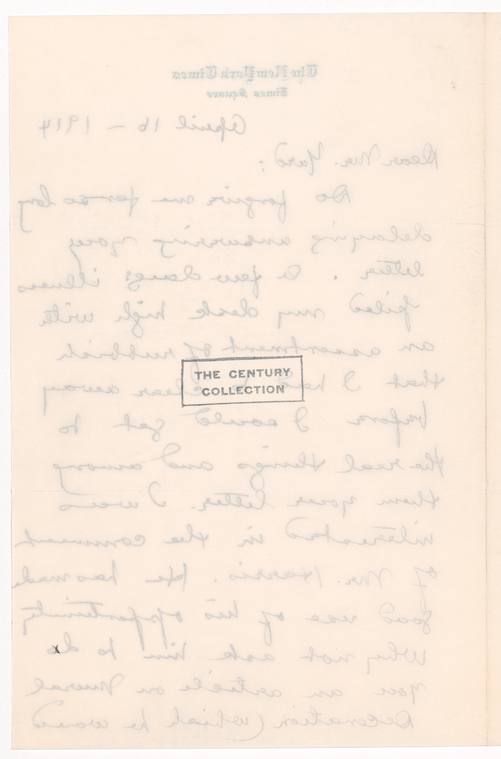 The New York Times
Times Square
April 16 - 1914
Dear Mr. Yard:
Do forgive me for so long
delaying answering your
letter. A few days illness
piled my desk high with
an assortment of rubbish
that I had to clear away
before I could get to
the real things and among
them your letter. I was
interested in the comment
of Mr. Harris. He has made
good use of his opportunity
Why not ask him to do
you an article on Mural
Decoration (which he would
THE CENTURY
COLLECTION